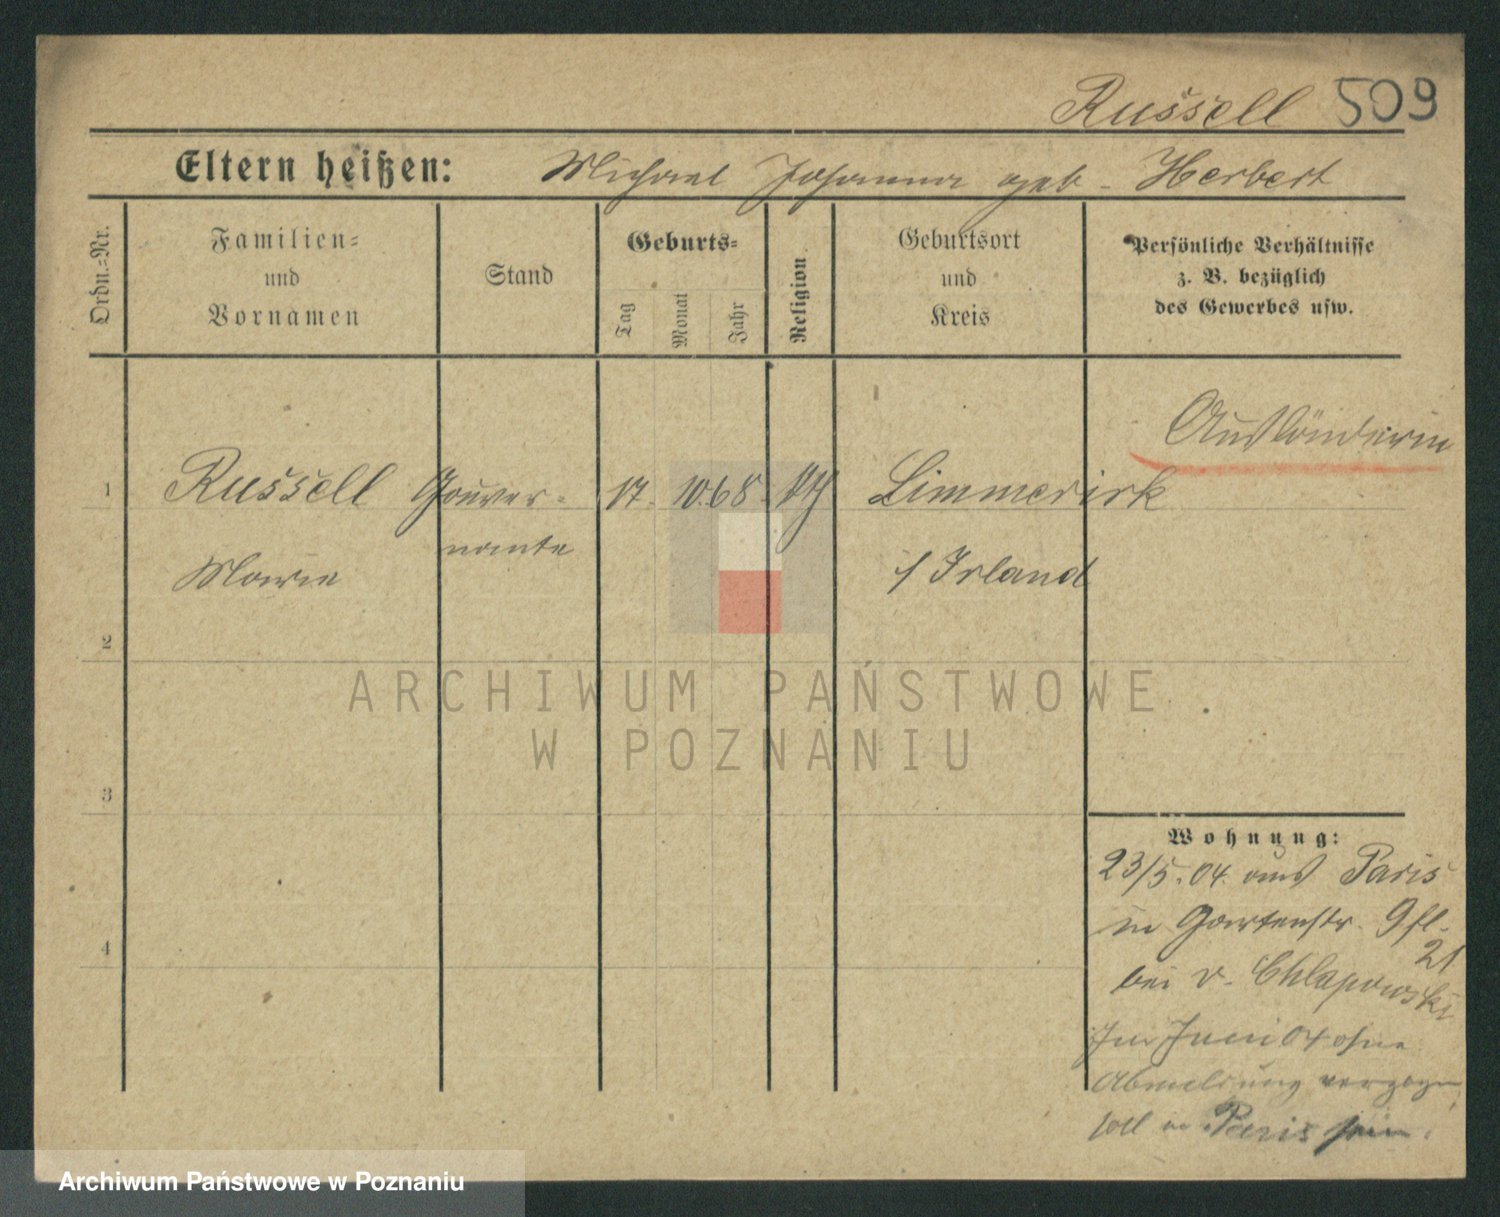 Russell 509
Eltern heißen: Michael Johanna geb. Herbert
Ordn.=Nr.
Familien=
und
Vornamen
Stand
Geburts=
Tag
Monat
Jahr
Religion
Geburtsort
und
Kreis
Persönliche Verhältnisse
z. B. bezüglich
des Gewerbes usw.
Ausländerin
1 Russell Gouver- 17. 10. 68. Limmerirk
Marie nante / Irland
2
3
4
Wohnung:
23/5. 04. aus Paris
in Gartenstr. 9 fl.
21
bei v. Chlapowski
Im Juni 04 ohne
Abmeldung verzogen
soll in Paris sein.
ARCHIWUM PAŃSTWOWE
W POZNANIU
Archiwum Państwowe w Poznaniu